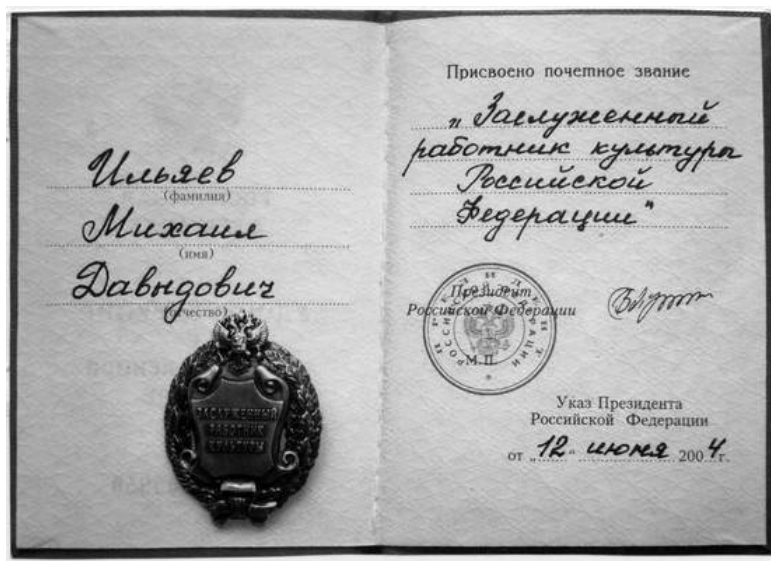 Ильяев
(фамилия)
Михаил
(имя)
Давыдович
(отчество)
ЗАСЛУЖЕННЫЙ
РАБОТНИК
КУЛЬТУРЫ
Присвоено почетное звание
„Заслуженный
работник культуры
Российской
Федерации"
Президент
Российской Федерации
ПРЕЗИДЕНТ
РОССИЙСКОЙ ФЕДЕРАЦИИ
М.П.
Указ Президента
Российской Федерации
от „12" июня 2004г.